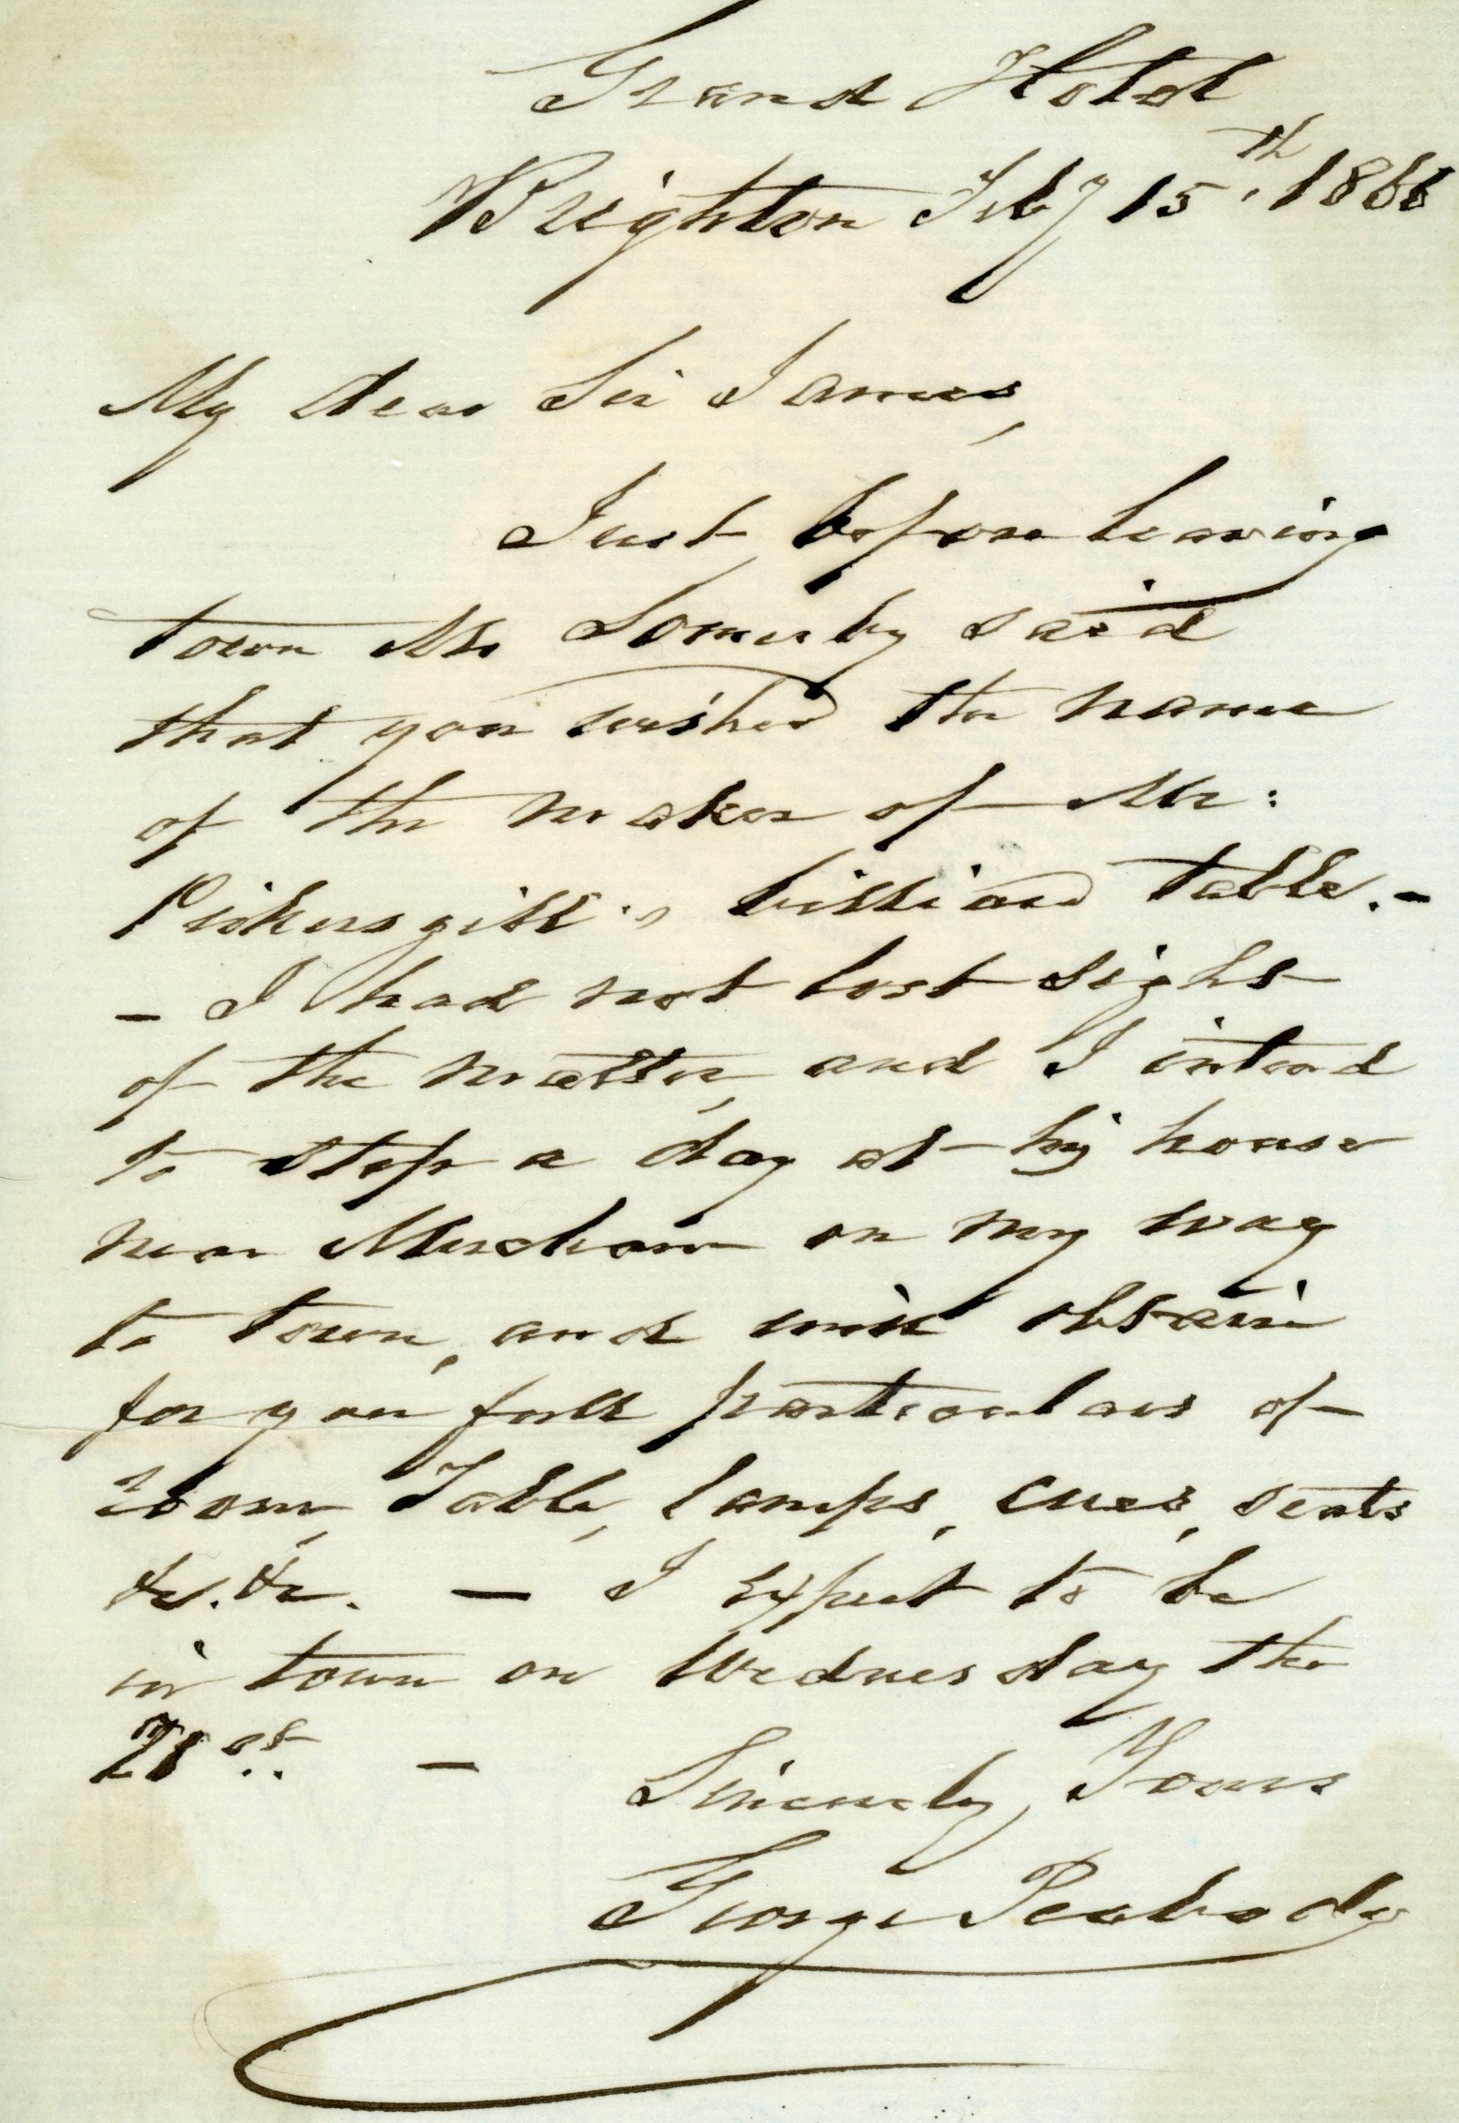 Grand Hotel
Brighton Feby 15th, 1866
My dear Sir James,
Just before leaving
town Mr Somerby said
that you wished the name
of the maker of Mr:
Pickersgill's billiard table.-
- I had not lost sight
of the matter, and I intend
to stop a day at his house
near Mersham on my way
to town, and will obtain
for you full particulars of
room, Table, lamps, cues, seats
&c. &c. — I expect to be
in town on Wednesday the
21st. -
Sincerely, Yours
George Peabody